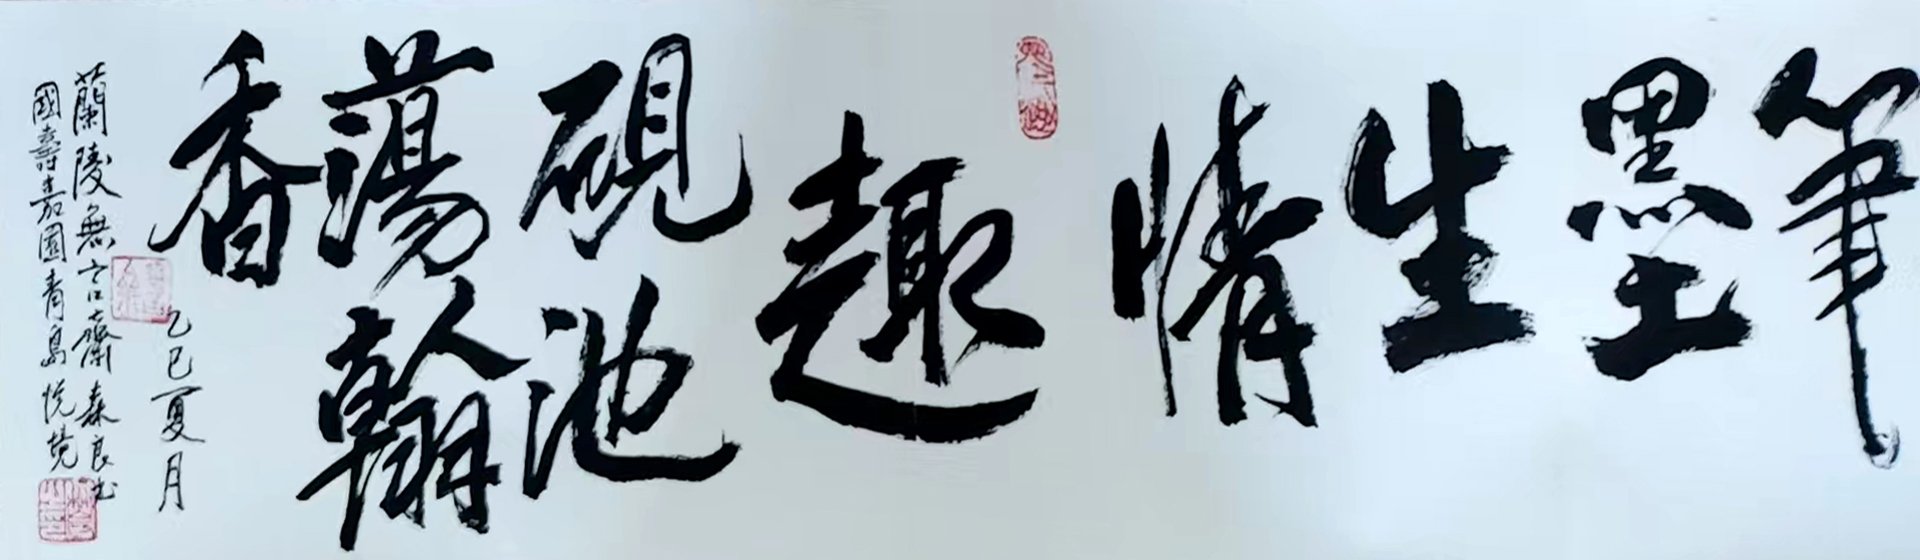 筆
墨
生
情
趣
硯池
蕩翰
香
乙巳夏月
蘭陵無言齋森良书
國壽嘉園青島悦境